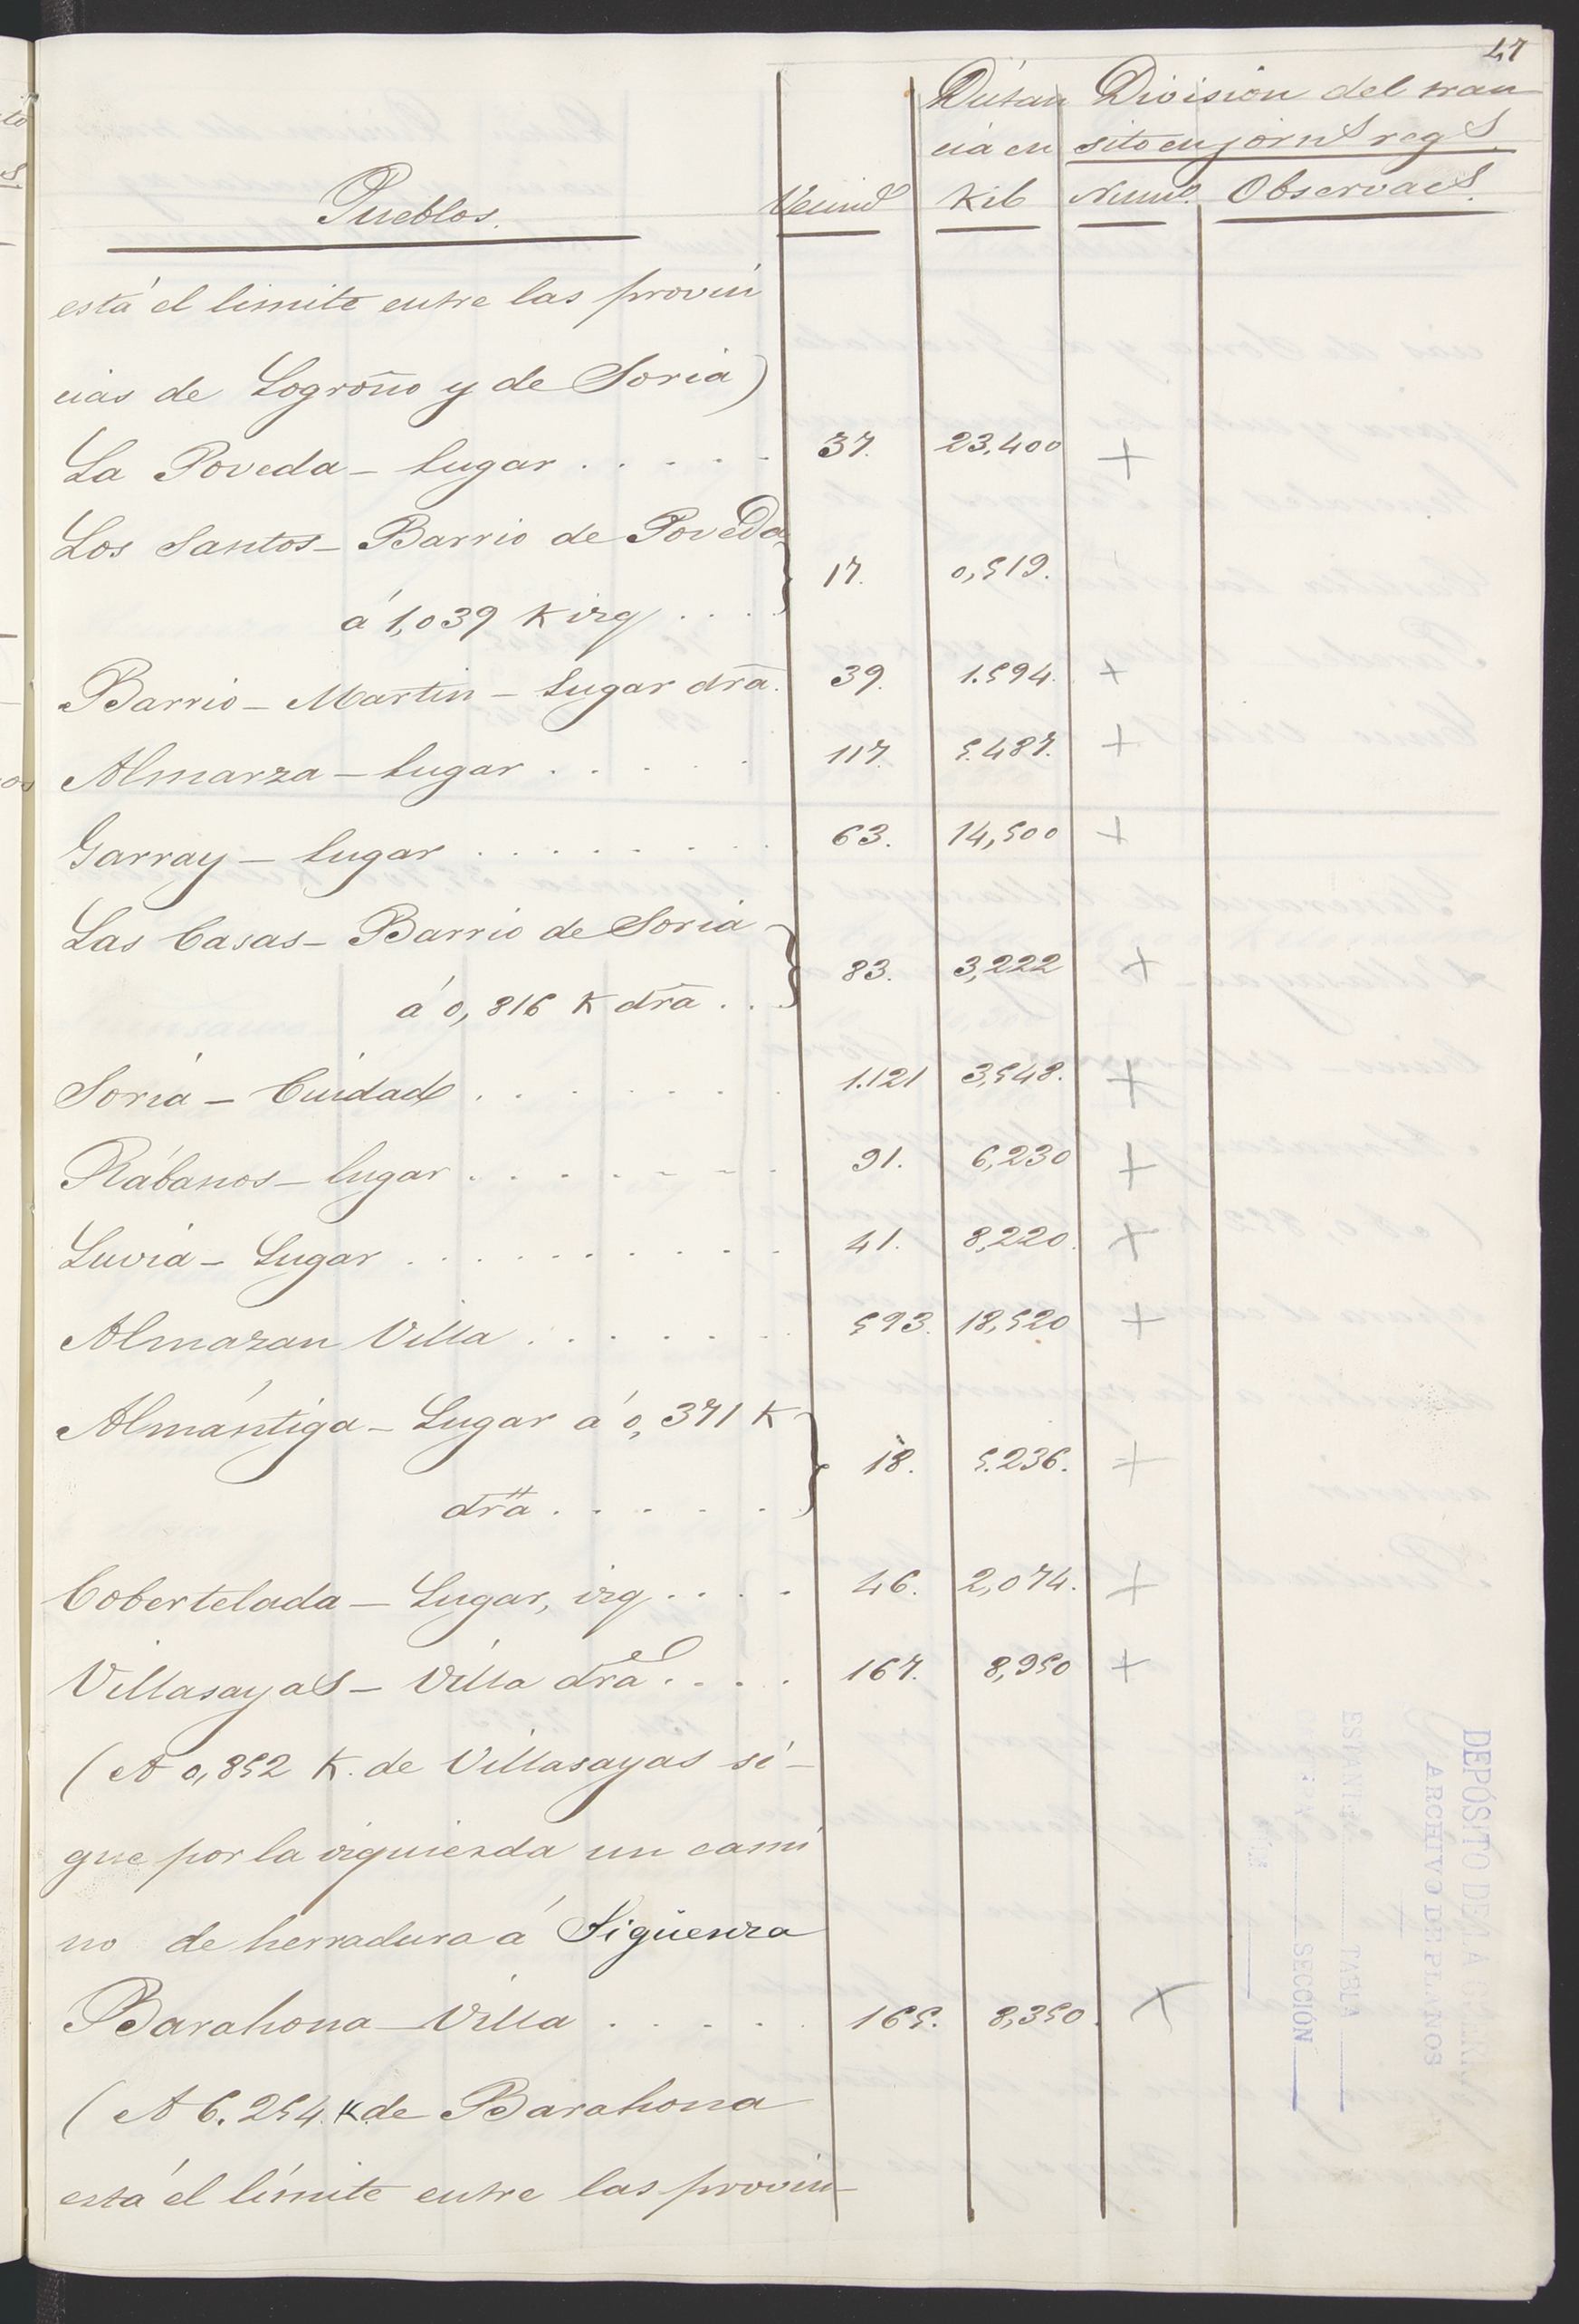 47
Distan División del tran
cia en sito en jorns regs.
Pueblos. Vecind Kil Num. Observacs.
está el limite entre las provin
cias de Logroño y de Soria)
La Poveda - Lugar . . . . . 37. 23,400 +
Los Santos - Barrio de Poveda
á 1,039 K izq . . . . 17. 0,519.
Barrio - Martin - Lugar dra. 39. 1.594. +
Almarza - Lugar . . . . . 117. 5.487. +
Garray - Lugar . . . . . . . . . 63. 14,500 +
Las Casas - Barrio de Soria
á 0,816 K dra . . . 83. 3,222 +
Soria - Ciudad . . . . . . . 1.121 3,548. +
Rábanos - lugar . . . . . . . . 91. 6,230 +
Luvia - Lugar . . . . . . . . . . 41. 8,220. +
Almazan Villa . . . . . . . 593. 18,520 +
Almántiga - Lugar á 0,371 K
dra . . . . . . 18. 5.236. +
Cobertelada - Lugar, izq . . . . 46. 2,074. +
Villasayas - Villa dra . . . . 167. 8,950 +
(A 0,852 K. de Villasayas si-
gue por la izquierda un cami
no de herradura á Sigüenza
Barahona - Villa . . . . . . 165. 8,350. +
(A 6.254. K. de Barahona
está el límite entre las provin-
DEPÓSITO DE LA GUERRA
ARCHIVO DE PLANOS
TABLA
SECCIÓN